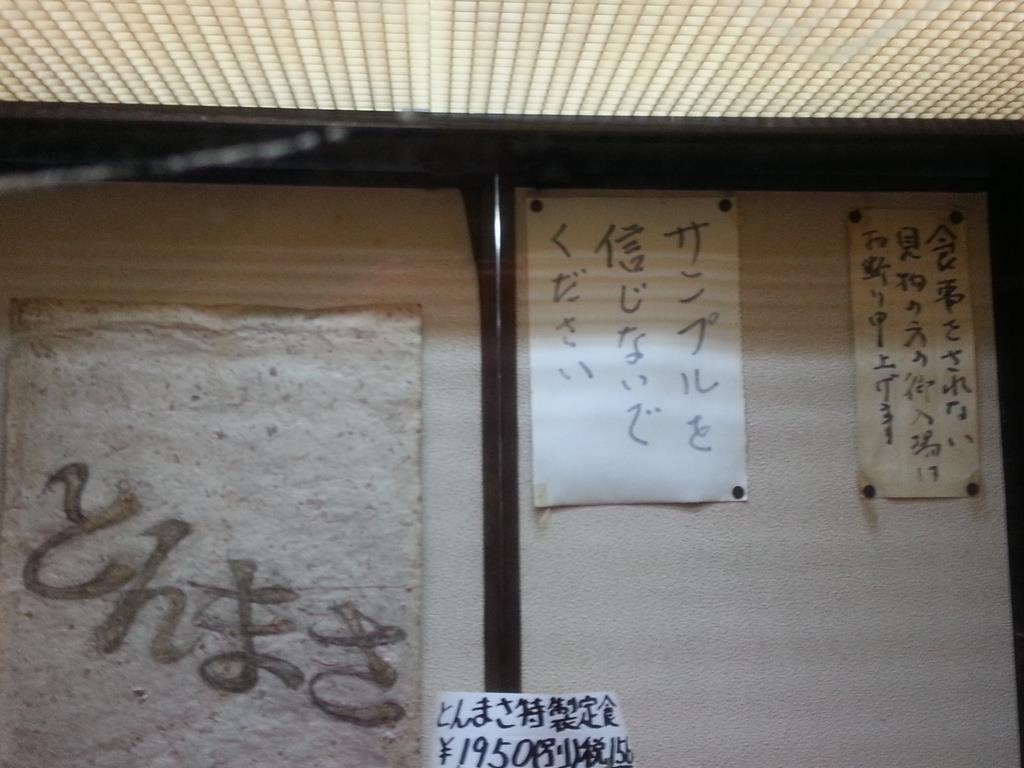 食事をされない
見物の方の御入場は
お断り申上げます
サンプルを
信じないで
ください
とんまさ
とんまさ特製定食
¥1950円別税156